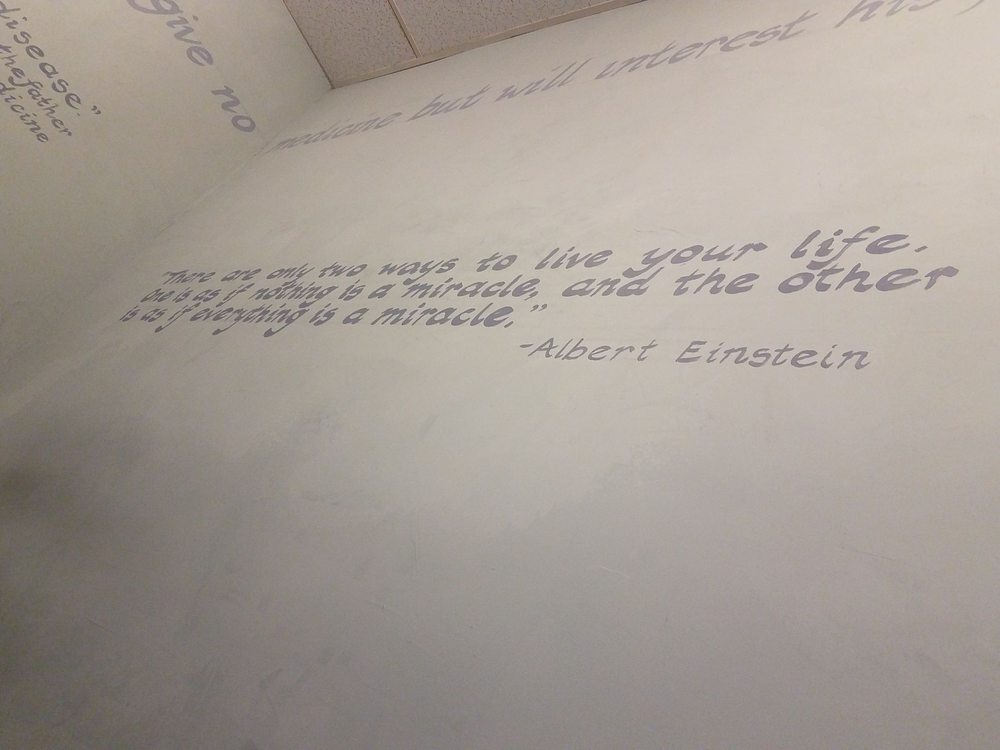 give no
disease."
the father
medicine but will interest his
"There are only two ways to live your life.
One is as if nothing is a miracle, and the other
is as if everything is a miracle."
-Albert Einstein